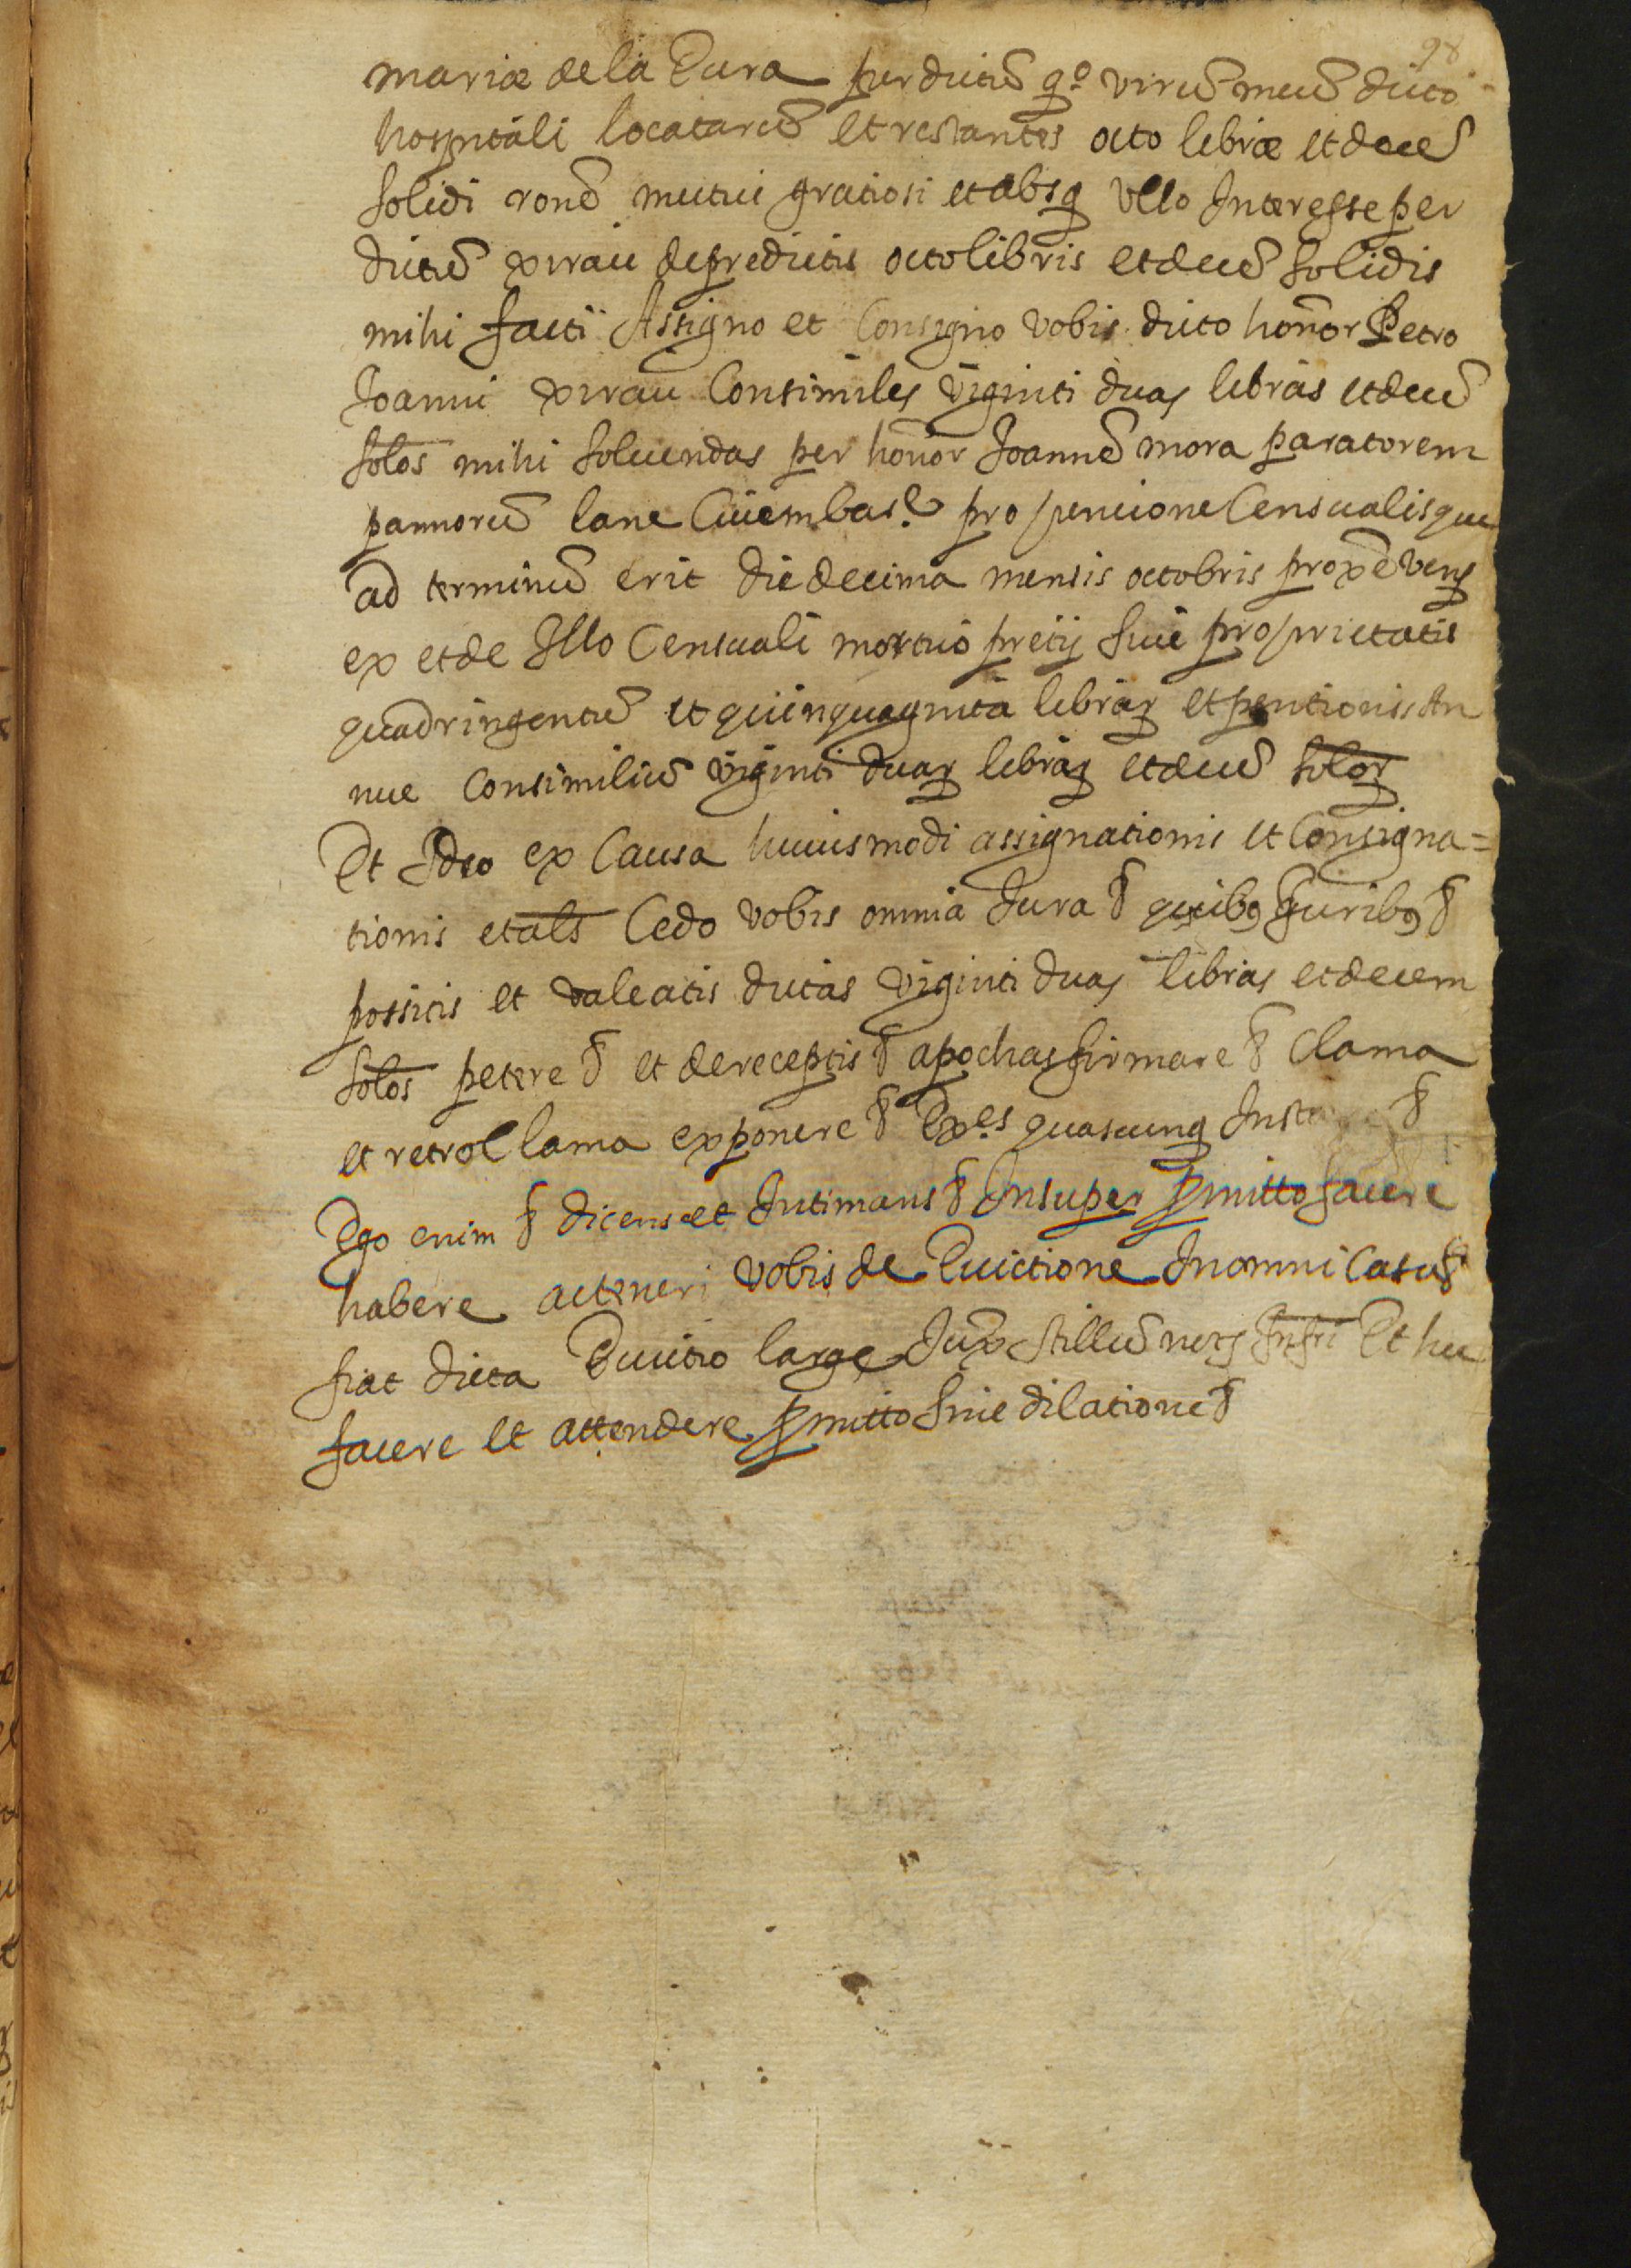 98
mariæ de la Cura per dictū qº virū meū dicto
hospitali locatarū et restantes octo libræ et decē
solidi ronē mutui gratiosi et absq̨ vllo Interesse per
dictū xirau de predictis octo libris et decē solidis
mihi facti Assigno et Consigno vobis dicto honor̄ Petro
Joanni xirau Consimiles viginti duas libras et decē
solos̄ mihi soluendas per honor̄ Joannē mora paratorem
pannorū lane Ciuem bar̄ pro pencione Censualis que
ad terminū erit die decima mensis octobris proxē veng
ex et de Illo Censuali mortuo pretij siue proprietatis
quadringentū et quinquaginta librar̨ et pentionis An
nue Consimiliū viginti duar̨ librar̨ et decē solor̨
Et Ideo ex Causa huiusmodi assignationis et Consigna=
tionis et als̄ Cedo vobis omnia Jura & quibꝯ Juribꝯ &
possitis et valeatis dictas viginti duas libras et decem
solos̄ petere & et de receptis & apochas firmare & Clama
et retroclama exponere & Exēs quascunq̨ Instare &
Ego enim & dicens et Intimans & Insuper ꝓmitto facere
habere ac teneri vobis de Euictione In omni Casu &
fiat dicta Euictio large Jux̄ stillū notȝ Infri̅ Et hec
facere et attendere ꝓmitto sine dilatione &